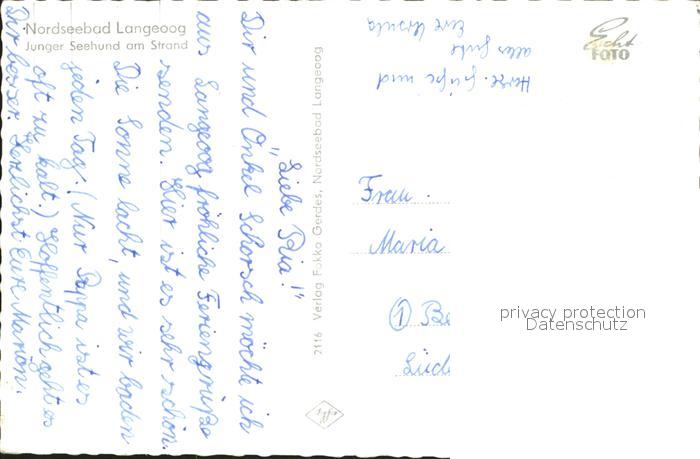 Nordseebad Langeoog
Junger Seehund am Strand
Echt
FOTO
"Liebe Ria!"
Dir und Onkel Schorsch möchte ich
aus Langeoog fröhliche Feriengrüße
senden. Hier ist es sehr schön.
Die Sonne lacht, und wir baden
jeden Tag. (Nur Pappa ist es
oft zu kalt.) Hoffentlich geht es
Dir besser. Herzlichst Eure Marion.
Herzl. Grüße und
alles Gute
Eure Ursula
2116 Verlag Fokko Gerdes, Nordseebad Langeoog
Frau
Maria
1 Be
Süd
privacy protection
Datenschutz